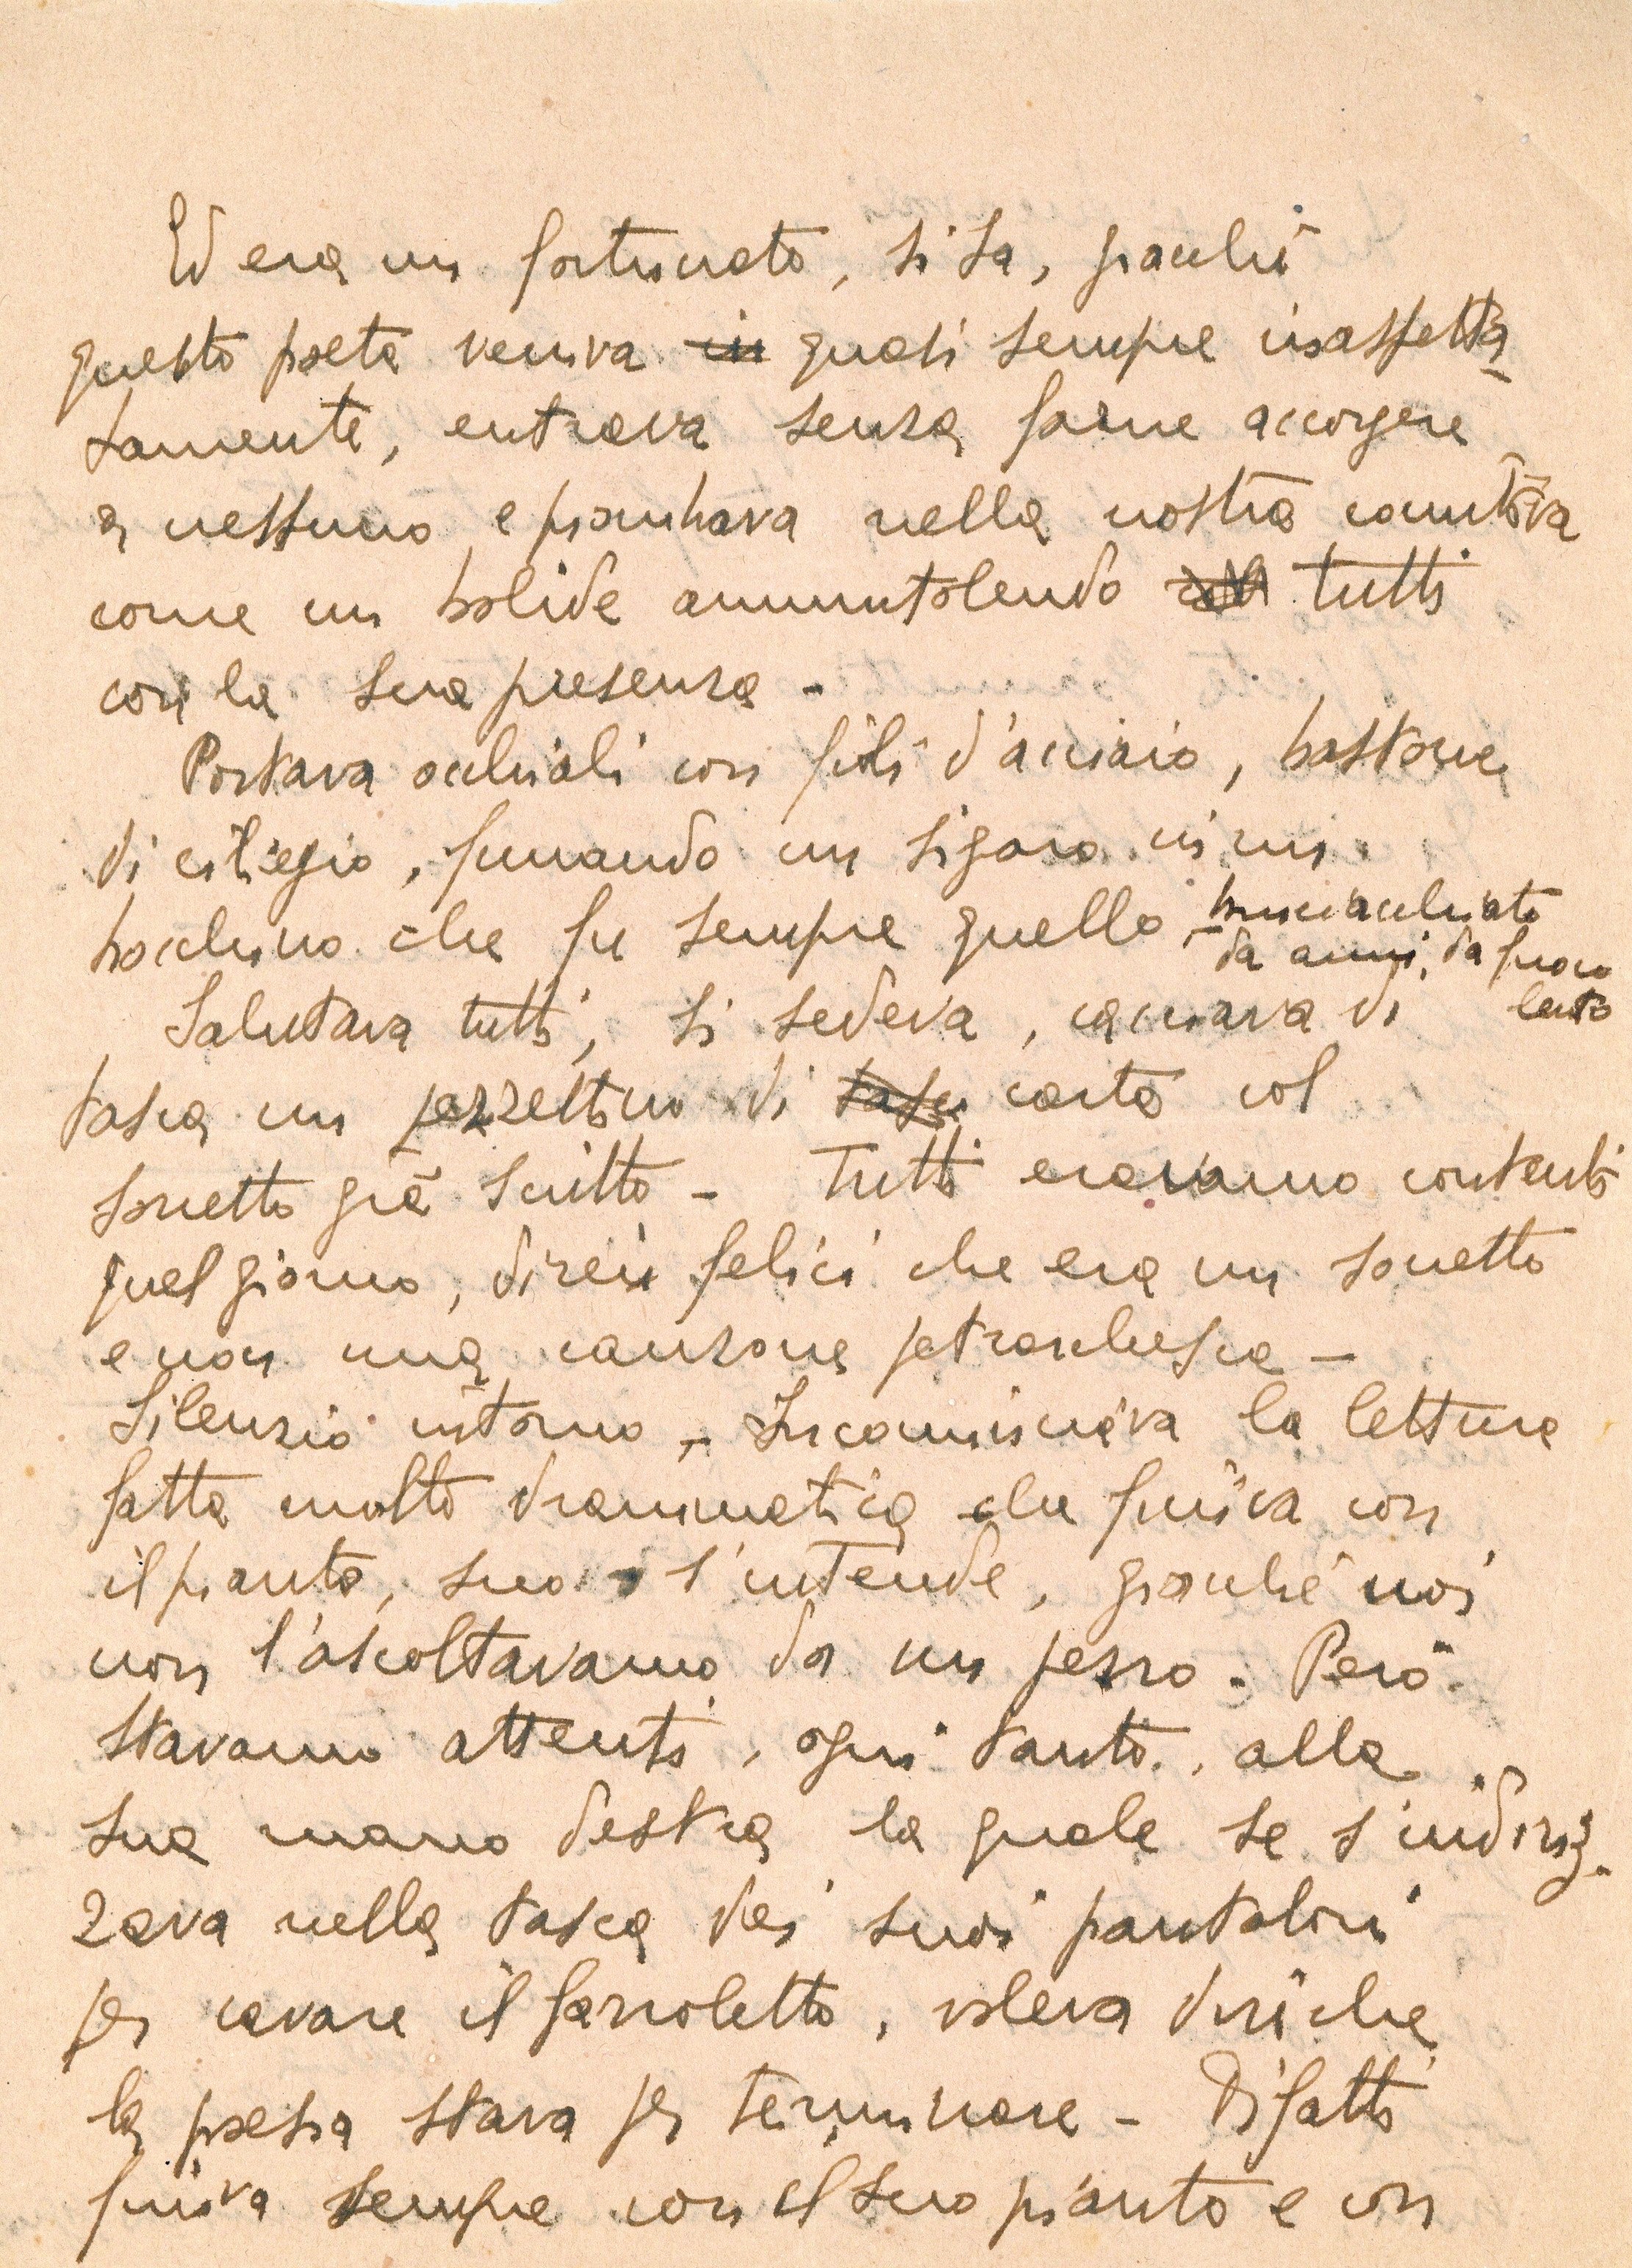 Ed era un fortunato, si sa, giacchè
questo poeta veniva in quasi sempre inaspetta-
tamente, entrava senza farne accorgere
a nessuno e piombava nella nostra comitiva
come un bolide ammutolendo tutti
con la sua presenza -
Portava occhiali con fili d'acciaio, bastone
di ciliegio, fumando un sigaro in un
bocchino che fu sempre quello, bruciacchiato
da anni, da fuoco
lento
Salutava tutti, si sedeva, cacciava di
tasca un pezzettino di tasca carta col
sonetto già scritto - Tutti eravamo contenti
quel giorno, direi felici che era un sonetto
e non una canzone petrarchesca -
Silenzio intorno - Incominciava la lettura
fatta molto drammatica che finiva con
il pianto, suo s'intende, giacchè noi
non l'ascoltavamo da un pezzo. Però
stavamo attenti, ogni tanto, alla
sua mano destra la quale se s'indiriz-
zava nella tasca dei suoi pantaloni
per cavare il fazzoletto, voleva dire che
la poesia stava per terminare - Difatti
finiva sempre con il suo pianto e con